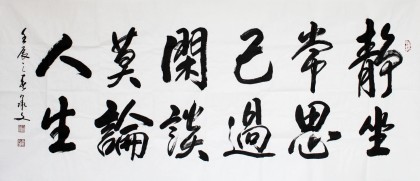 靜坐
常思
己過
閑談
莫論
人生
壬辰之春承文